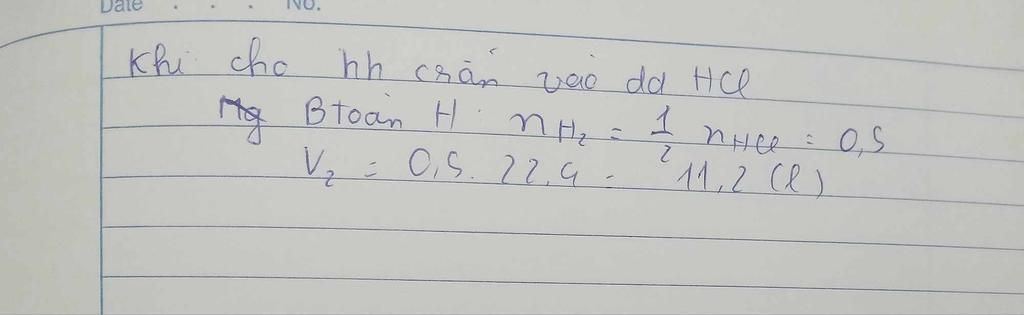 Date . . . No.
Khi cho hh crắn vào dd HCl
Btoàn H: nH₂ = 1/2 nHCl = 0,5
V₂ = 0,5. 22,4 = 11,2 (l)